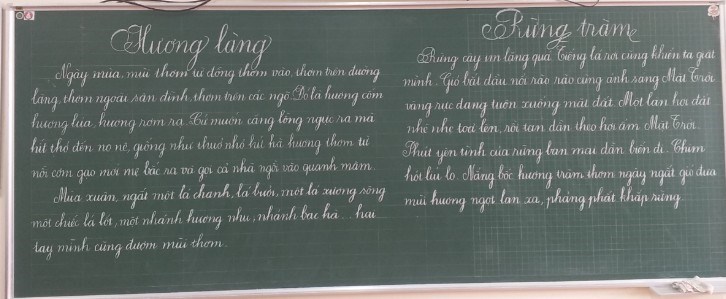 Hương làng
Ngày mùa, mùi thơm từ đồng thơm vào, thơm trên đường
làng, thơm ngoài sân đình, thơm trên các ngõ. Đó là hương cốm
hương lúa, hương rơm rạ. Cứ muốn căng lồng ngực ra mà
hít thở đến no nê, giống như thuở nhỏ hít hà hương thơm từ
nồi cơm gạo mới mẹ bắc ra và gọi cả nhà ngồi vào quanh mâm.
Mùa xuân, ngắt một lá chanh, lá bưởi, một lá xương sông
một chiếc lá lốt, một nhánh hương nhu, nhánh bạc hà... hai
tay mình cũng đượm mùi thơm.
Rừng tràm
Rừng cây im lặng quá. Tiếng lá rơi cũng khiến ta giật
mình. Gió bắt đầu nổi rào rào cùng ánh sáng Mặt Trời
vàng rực đang tuôn xuống mặt đất. Một làn hơi đất
nhè nhẹ toả lên, rồi tan dần theo hơi ấm Mặt Trời.
Phút yên tĩnh của rừng ban mai dần biến đi. Chim
hót líu lo. Nắng bốc hương tràm thơm ngây ngất gió đưa
mùi hương ngọt lan xa, phảng phất khắp rừng.